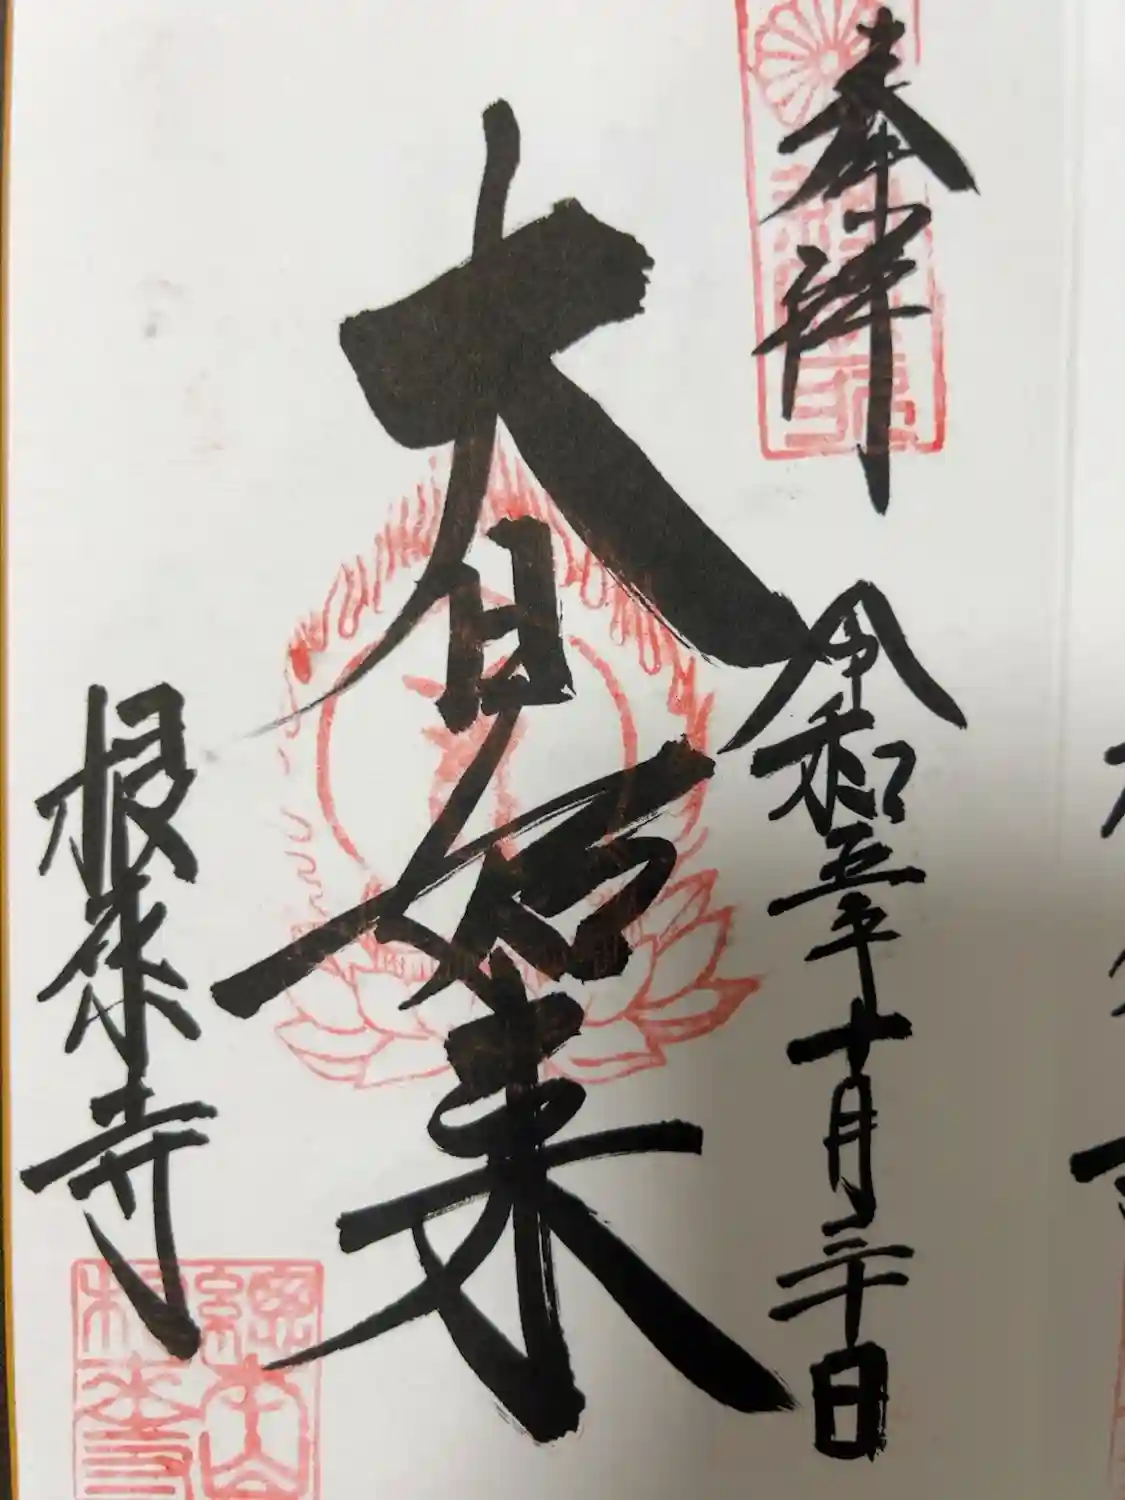 奉拝
令和五年十月三十日
大日如来
根来寺